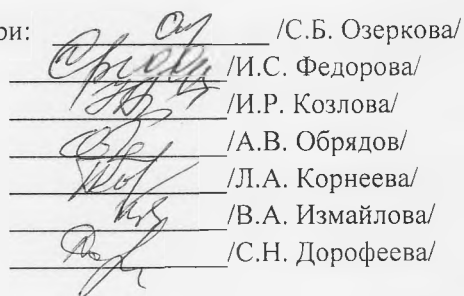 ри: /С.Б. Озеркова/
/И.С. Федорова/
/И.Р. Козлова/
/А.В. Обрядов/
/Л.А. Корнеева/
/В.А. Измайлова/
/С.Н. Дорофеева/